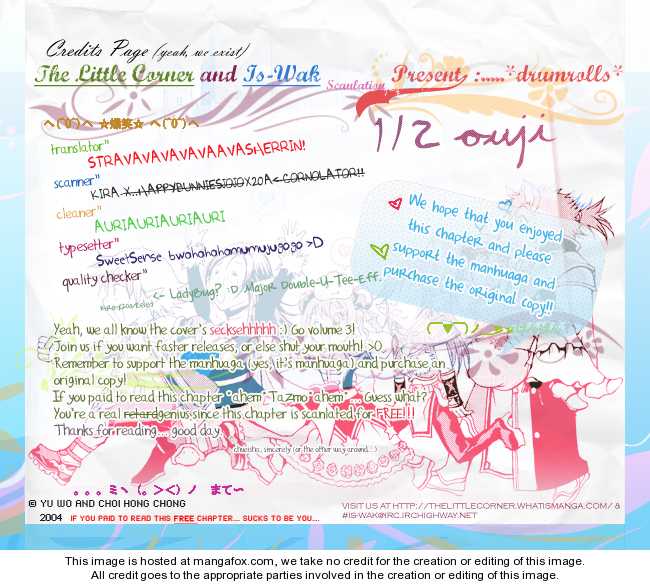 Credits Page (yeah, we exist)
The Little Corner and Is-Wak Scanlation Present, :.....*drumrolls*
1/2 ouji
ヘ(^0^)ヘ ☆爆笑☆ ヘ(^0^)ヘ
translator"
STRAVAVAVAVAVAAVASHERRIN!
scanner"
KIRA-X...HAPPYBUNNIESJOJOX20A<-CORNOLATOR!!
cleaner"
AURIAURIAURIAURI
typesetter"
SweetSense bwahahahamumuyugogo >D
quality checker"
<- LadyBug? :D Major Double-U-Tee-Eff.
We hope that you enjoyed
this chapter and please
support the manhuaga and
purchase the original copy!!
Yeah, we all know the cover's secksehhhhh :) Go volume 3!
Join us if you want faster releases, or else shut your mouth! >:O
Remember to support the manhuaga (yes, it's manhuaga) and purchase an
original copy!
If you paid to read this chapter *ahem* Tazmo *ahem*... Guess what?
You're a real retard genius since this chapter is scanlated for FREE!!!
Thanks for reading... good day.
sincerely (or the other way around...)
。。。ミヽ(。><)ノ まて～
© YU WO AND CHOI HONG CHONG
2004 IF YOU PAID TO READ THIS FREE CHAPTER... SUCKS TO BE YOU...
VISIT US AT HTTP://THELITTLECORNER.WHATISMANGA.COM/ &
#IS-WAK@IRC.IRCHIGHWAY.NET
This image is hosted at mangafox.com, we take no credit for the creation or editing of this image.
All credit goes to the appropriate parties involved in the creation or editing of this image.